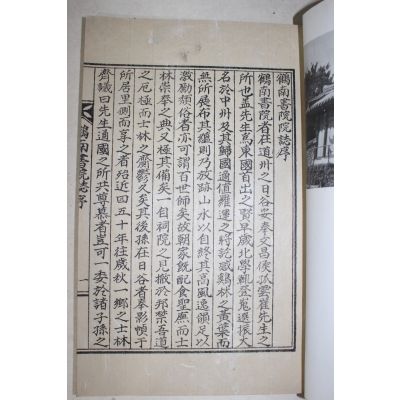 鶴南書院院誌序
鶴南書院者在道州之日谷妥奉文昌侯孤雲崔先生之
所也孟先生爲東國首出之賢早歲北學蜚英鬼選振大
名於中州及其歸國適值羅運之將訖感鷄林之黃葉而
無所展布其蘊則乃放跡山水以自終其高風逸韻足以
激勵頹俗者亦可謂百世師矣故朝家旣配食聖廡而士
林崇奉之典又極其備矣一自祠院之見撤於邦禁吾道
之厄極而士林之齎鬱久矣其後孫在日谷者奉影幀于
所居里側而享之者殆近四五十年往歲秋一鄕之士林
齊議曰先生通國之所共尊慕者豈可一委於諸子孫之
鶴南書院誌序
一